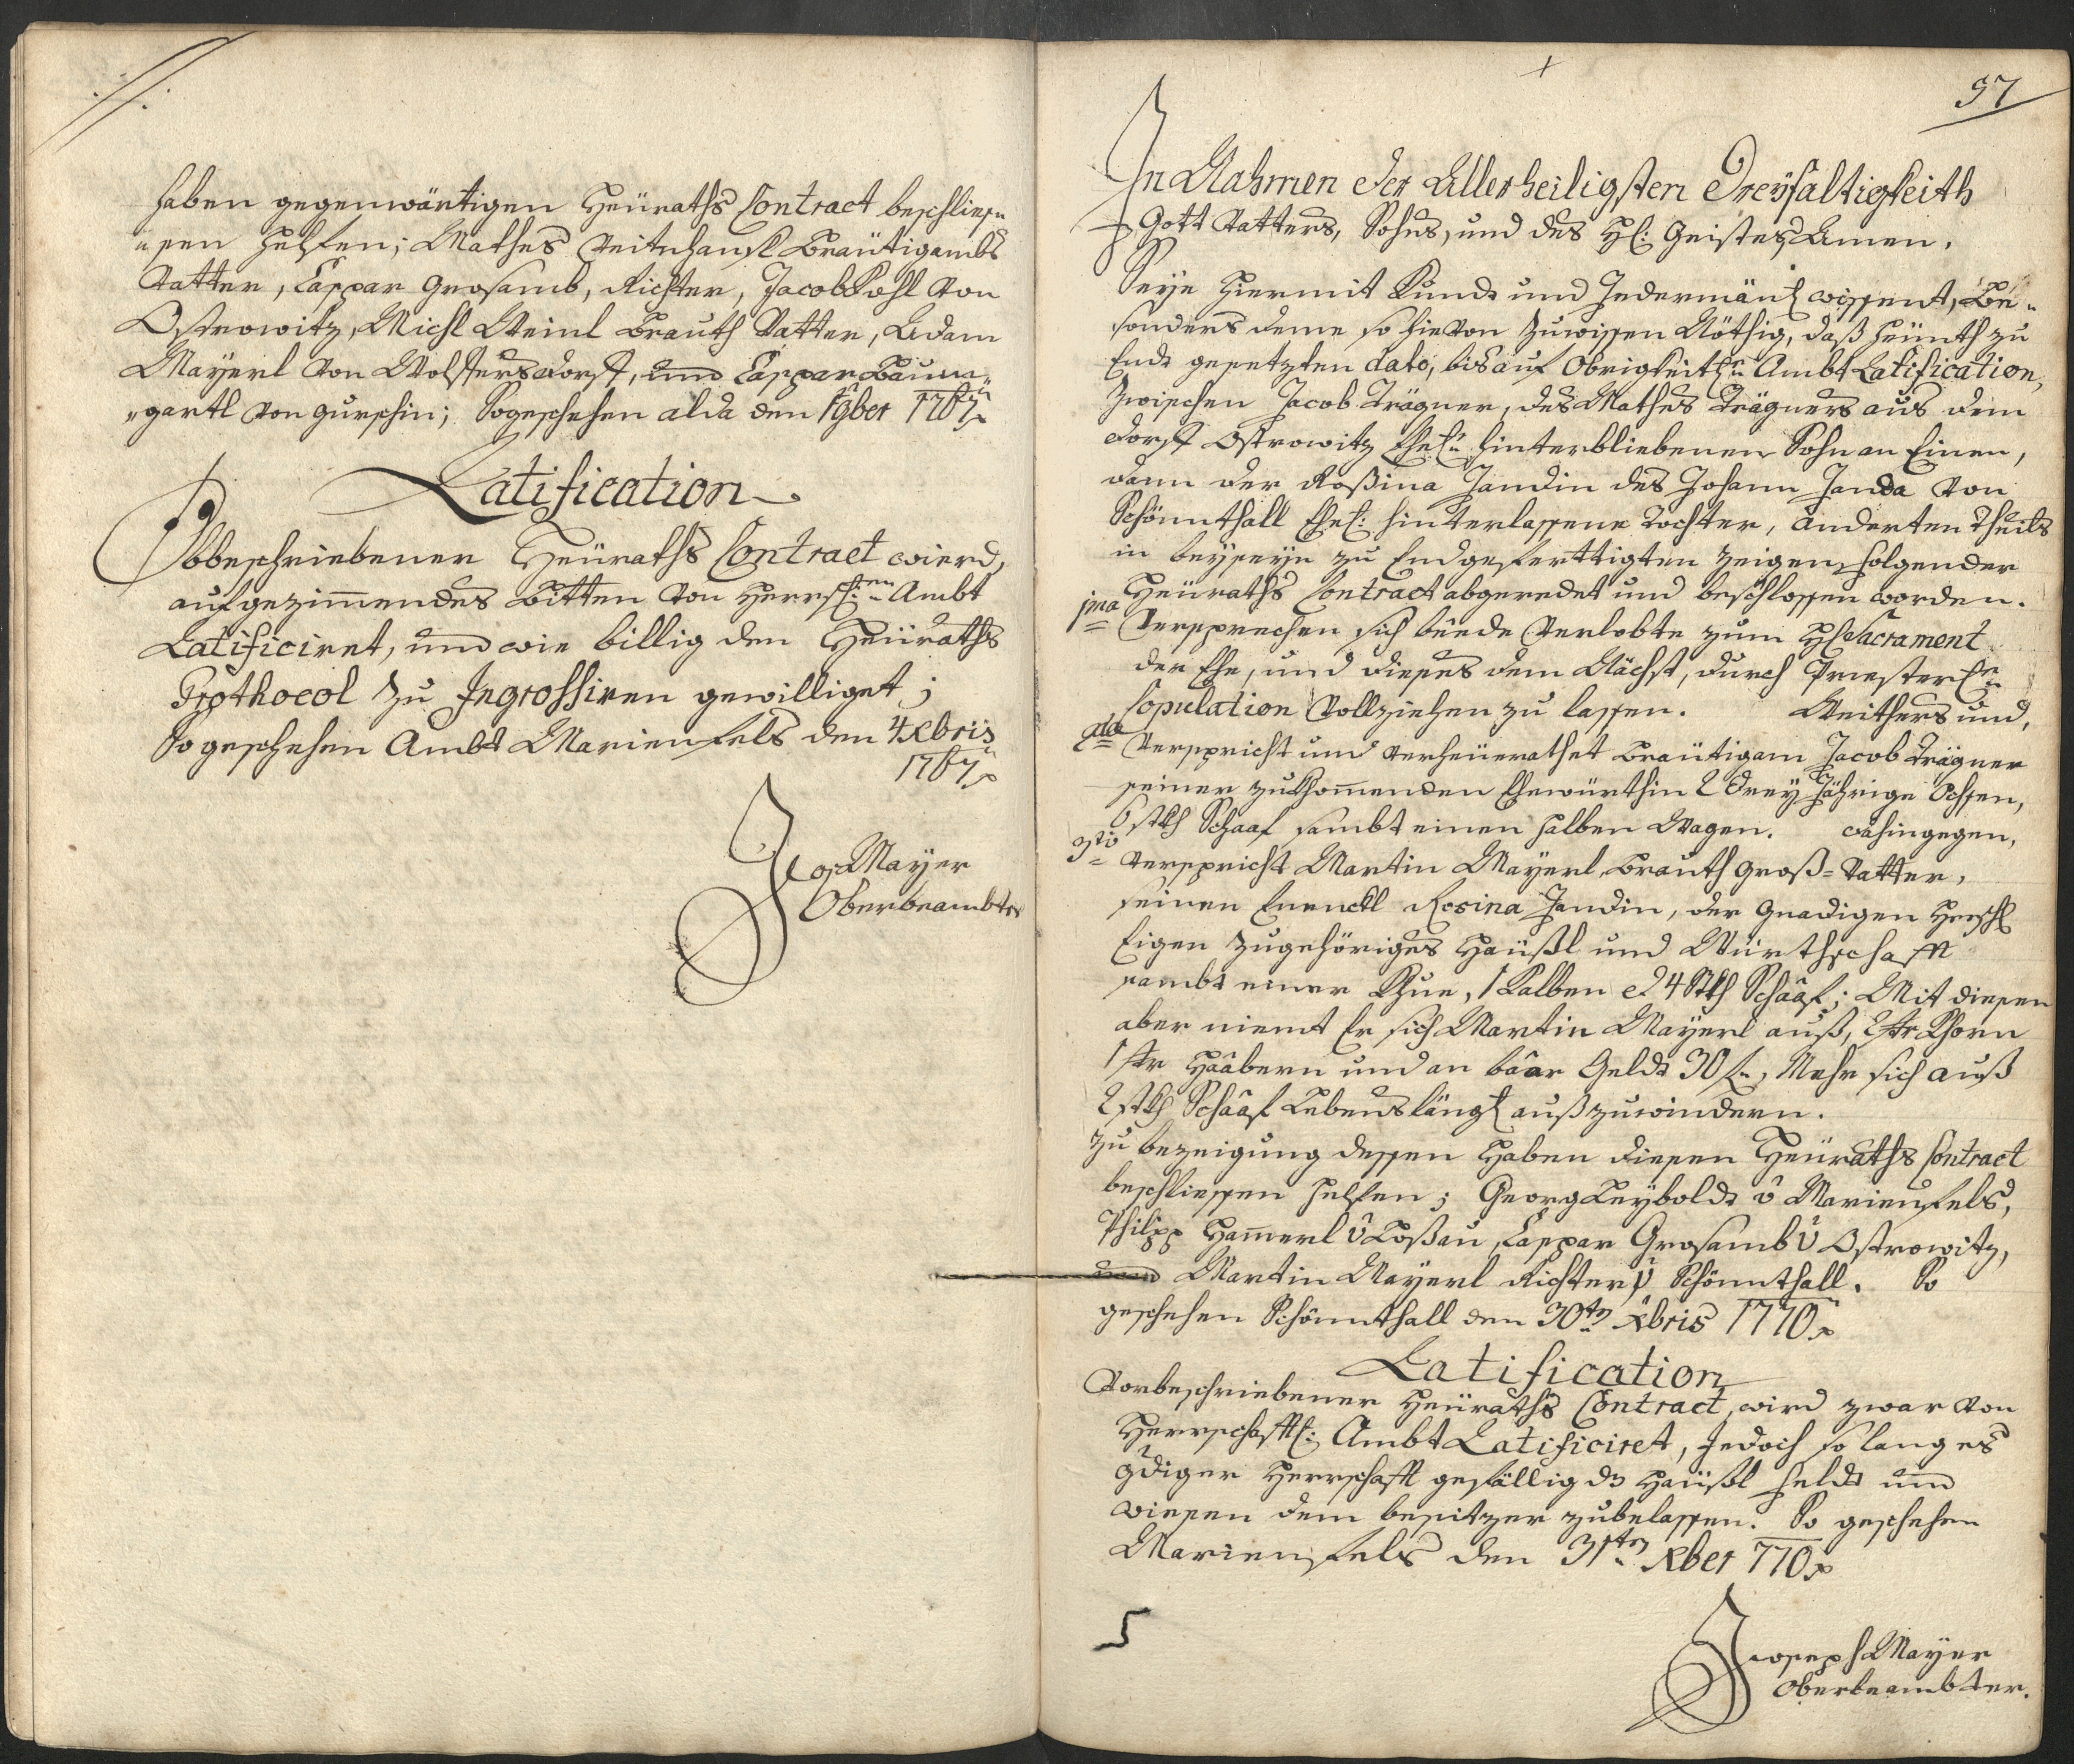 haben gegenwärtigen Heüraths Contract beschlies„
„sen helfen; Mathes Bräutigambs
Vatter, Caspar Grosamb, Richter, Jacob Kohl von
Ostrowitz, Michl Weinl Brauth Vatter, Adam
Mayerl von Wolfersdorf, und Caspar Baum„
„gartl von Gurschin; So geschehen alda den 9ber 1767
Ratification
Obbeschriebener Heüraths Contract wierd,
auf gezimmendes Bitten von Herrschen Ambt
Ratificiret, und wie billig den Heüraths
Prothocol zu Ingrossiren gewilliget;
So geschehen Ambt Marienfels den 4 Xbris
1767
Jos Mayer
Oberbeambter
97
In Nahmen der Allerheiligsten Dreyfaltigkeith
Gott Vatters, Sohns, und des Hl: Geistes Amen.
Seye hiermit Kundt und Jedermänl wissent, Be„
sonders deme so hievon zuwissen Nöthig, daß heünth zu
Endt gesetzten dato, bis auf Obrigkeitln Ambt Ratification,
Zwischen Jacob Trägner, des Mathes Trägners aus dem
Dorff Ostrowitz Ehel: hinterbliebenen Sohn an Einen,
dann der Roßina Jandin des Johann Janda von
Schönnthall Ehel: hinterlassene Tochter, anderten Theils
in beyseyn zu Endgefertigten Zeigen, folgender
Heüraths Contract abgeredet und beschlossen worden.
1mo Versprechen sich beede Verlobte zum Hl Sacrament
der Ehe, und dieses dem Nächst, durch Priesterln
Copulation Vollziehen zu lassen. Weithers und,
2do Verspricht und verheüerathet Bräutigam Jacob Trägner
seiner zukhommenden Ehewürthin 2 drey Jährige Ochsen,
6 stkh Schaaf sambt einen halben Wagen. dahingegen,
3tio Verspricht Martin Mayerl, Brauth Groß-Vatter,
seinen Enenckl Rosina Jandin, der Gnadigen Herschl
Eigen zugehöriges Haüßl und Würthschafft
sambt einer Khue, 1 Kalben et 4 Stkh Schaaf; Mit diesen
aber niemt Er sich Martin Mayerl auß, 2 Str Khorn
1 Str Haabern und an baar Geldt 30 f, Mehr sich auß
2 stkh Schaaf Lebenslängl außzuwindern.
Zu bezeigung dessen Haben diesen Heüraths Contract
beschliessen helfen; Georg Leyboldt v Marienfels,
Philipp Hammerl v Loßau, Caspar Grosamb v Ostrowitz,
und Martin Mayerl Richter v Schönnthall. So
geschehen Schönnthall den 30tn Xbris 1770
Ratification
Vorbeschriebener Heüraths Contract, wird zwar von
Herrschafftl: Ambt Ratificiret, jedoch so lang es
gdiger Herrschafft gefällig dz Haüßl Feldt und
wiesen dem besitzer zubelassen. So geschehen
Marienfels den 31tn Xber 770
Joseph Mayer
Oberbeambter.